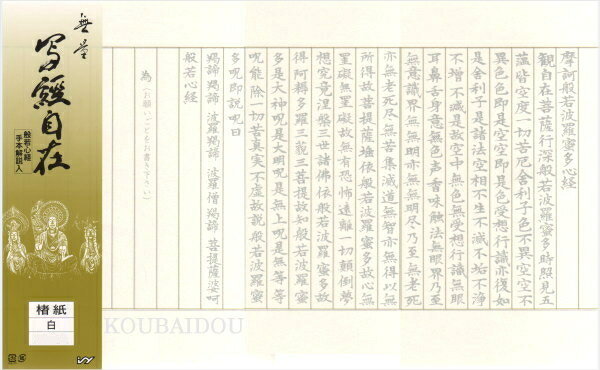 無量
写経自在
般若心経
手本解説入
楮紙
白
摩訶般若波羅蜜多心経
観自在菩薩行深般若波羅蜜多時照見五
蘊皆空度一切苦厄舎利子色不異空空不
異色色即是空空即是色受想行識亦復如
是舎利子是諸法空相不生不滅不垢不浄
不増不減是故空中無色無受想行識無眼
耳鼻舌身意無色声香味触法無眼界乃至
無意識界無無明亦無無明尽乃至無老死
亦無老死尽無苦集滅道無智亦無得以無
所得故菩提薩埵依般若波羅蜜多故心無
罣礙無罣礙故無有恐怖遠離一切顛倒夢
想究竟涅槃三世諸佛依般若波羅蜜多故
得阿耨多羅三藐三菩提故知般若波羅蜜
多是大神呪是大明呪是無上呪是無等等
呪能除一切苦真実不虚故説般若波羅蜜
多呪即説呪曰
羯諦羯諦 波羅羯諦 波羅僧羯諦 菩提薩婆訶
般若心経
為(お願いごとをお書き下さい)
KOUBAIDOU